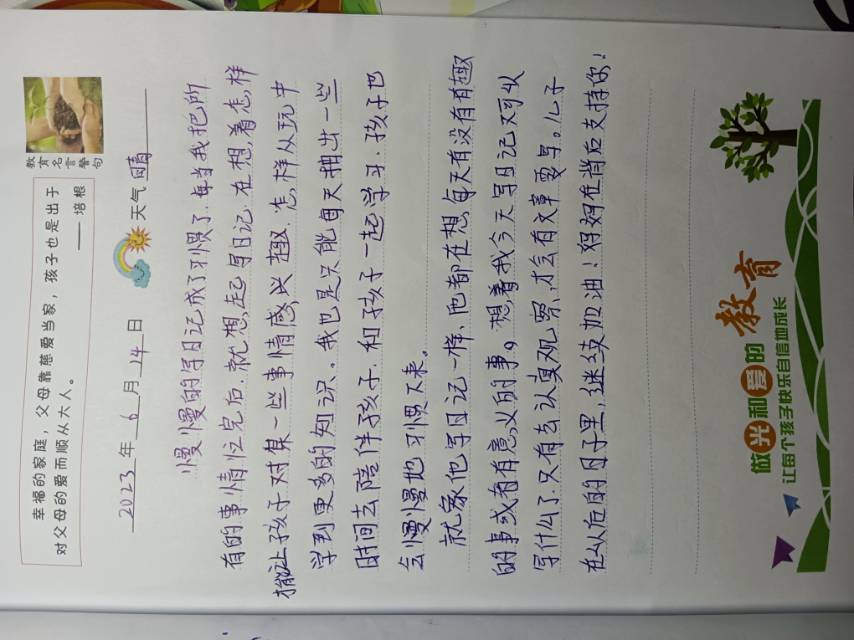 教育名言警句
幸福的家庭，父母靠慈爱当家，孩子也是出于
对父母的爱而顺从大人。
—— 培根
2023年6月14日 天气晴
慢慢的写日记成了习惯了.每当我把所
有的事情忙完后.就想起写日记.在想着怎样
才能让孩子对某一些事情感兴趣.怎样从玩中
学到更多的知识。我也是只能每天抽出一些
时间去陪伴孩子.和孩子一起学习.孩子也
会慢慢地习惯下来。
就象他写日记一样、他都在想每天有没有有趣
的事或者有意义的事。想着我今天写日记又可以
写什么了.只有去认真观察.才会有文章要写。儿子
在以后的日子里，继续加油！妈妈在背后支持你！
做光和爱的教育
让每个孩子快乐自信地成长